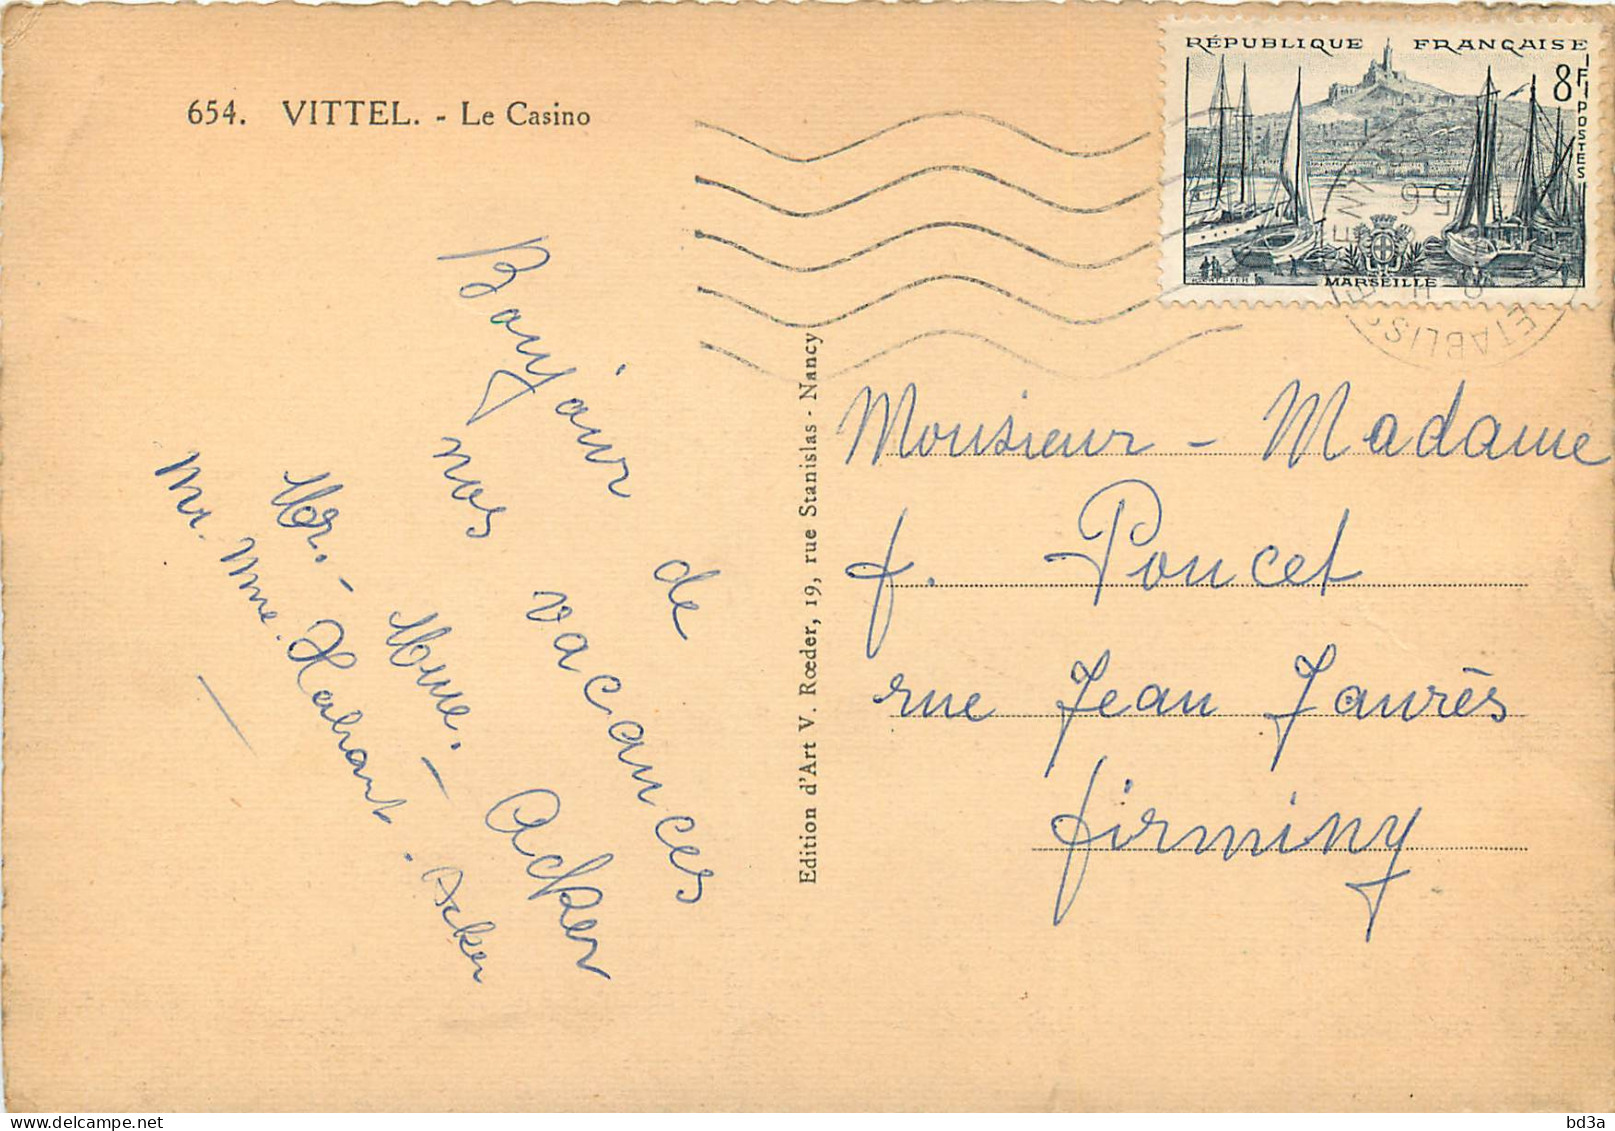 654. VITTEL. - Le Casino
RÉPUBLIQUE FRANÇAISE
8F
POSTES
MARSEILLE
56
ETABLIS
Bonjour de
nos vacances
Mr. - Mme. - Acker
Mr. Mme. Hahant - Acker
Edition d'Art V. Rœder, 19, rue Stanislas - Nancy
Monsieur - Madame
f. Poncet
rue Jean Jaurès
firminy
bd3a